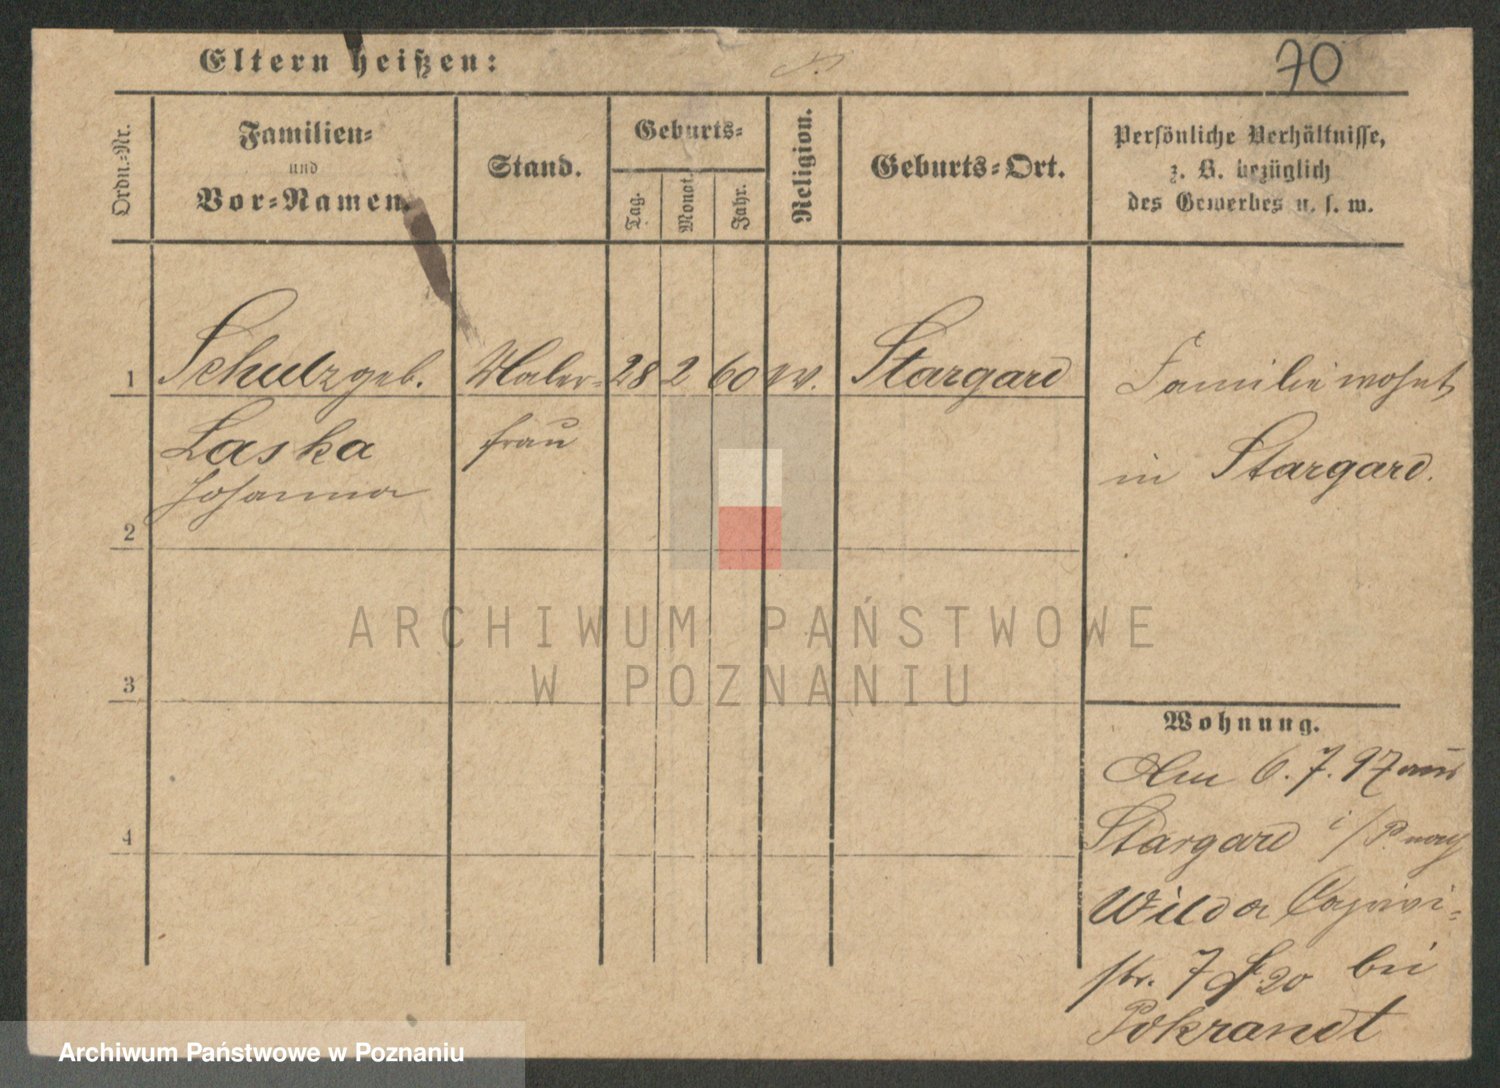 Eltern heißen:
70
Ordn.-Nr.
Familien-
und
Vor-Namen.
Stand.
Geburts-
Tag.
Monat.
Jahr.
Religion.
Geburts-Ort.
Persönliche Verhältnisse,
z. B. bezüglich
des Gewerbes u. s. w.
1 Schulz geb. Maler- 28 2 60 Stargard
Laska frau
Johanna
Familie wohnt
in Stargard.
2
3
4
Wohnung.
Am 6. 7. 97 aus
Stargard i/P. nach
Wilda
str. 7 20 bei
Pokrandt
ARCHIWUM PAŃSTWOWE
W POZNANIU
Archiwum Państwowe w Poznaniu